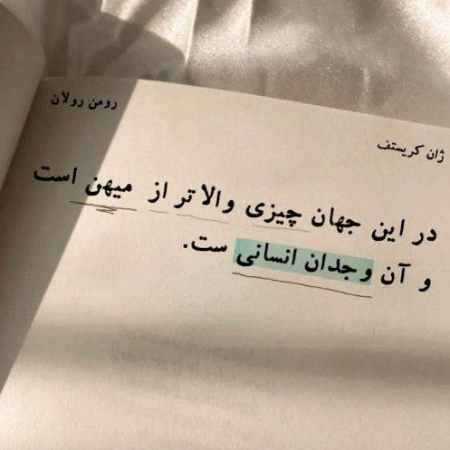 رومن رولان
ژان کریستف
در این جهان چیزی والاتر از میهن است
و آن وجدان انسانی ست.